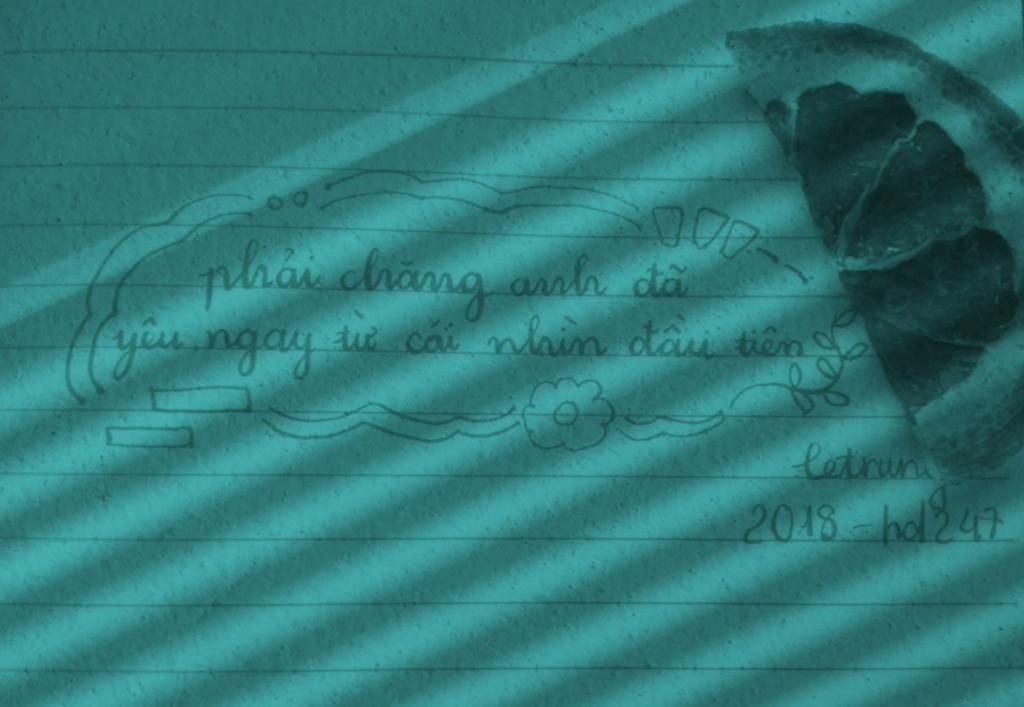 phải chăng anh đã
yêu ngay từ cái nhìn đầu tiên
letrung
2018 - hd247